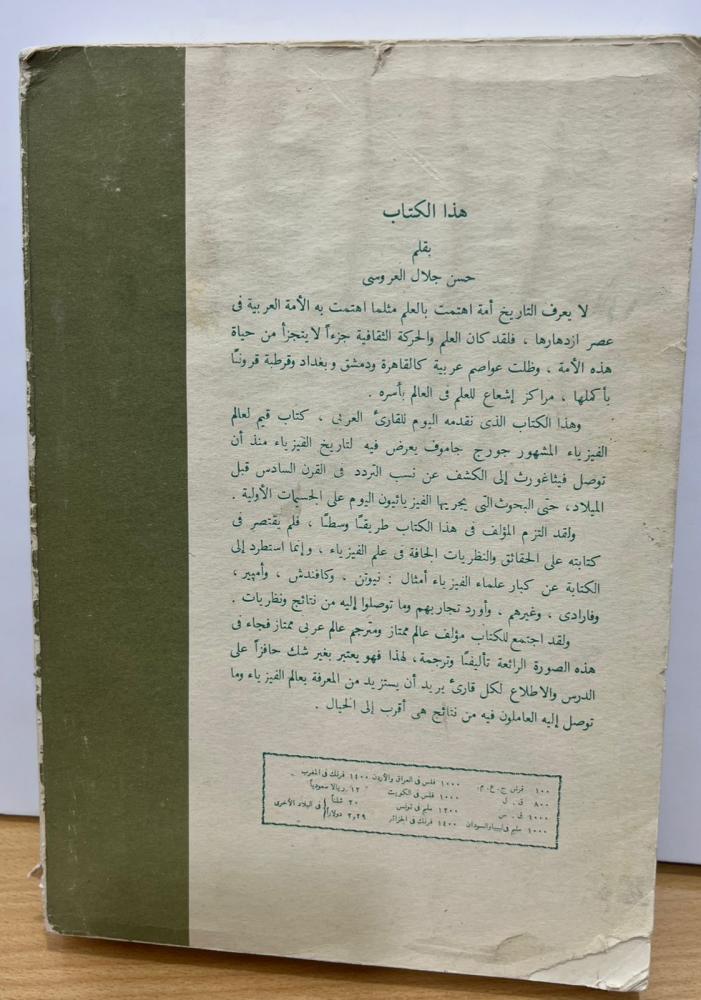 هذا الكتاب
بقلم
حسن جلال العروسى
لا يعرف التاريخ أمة اهتمت بالعلم مثلما اهتمت به الأمة العربية فى
عصر ازدهارها ، فلقد كان العلم والحركة الثقافية جزءاً لا يتجزأ من حياة
هذه الأمة ، وظلت عواصم عربية كالقاهرة ودمشق وبغداد وقرطبة قروناً
بأكملها ، مراكز إشعاع للعلم فى العالم بأسره .
وهذا الكتاب الذى نقدمه اليوم للقارئ العربى ، كتاب قيم لعالم
الفيزياء المشهور جورج جاموف يعرض فيه لتاريخ الفيزياء منذ أن
توصل فيثاغورث إلى الكشف عن نسب التردد فى القرن السادس قبل
الميلاد، حتى البحوث التى يجريها الفيزيائيون اليوم على الجسيمات الأولية .
ولقد التزم المؤلف فى هذا الكتاب طريقاً وسطاً ، فلم يقتصر فى
كتابته على الحقائق والنظريات الجافة فى علم الفيزياء ، وإنما استطرد إلى
الكتابة عن كبار علماء الفيزياء أمثال : نيوتن ، وكافندش ، وأمپير ،
وفارادى ، وغيرهم ، وأورد تجاربهم وما توصلوا إليه من نتائج ونظريات .
ولقد اجتمع للكتاب مؤلف عالم ممتاز ومترجم عالم عربى ممتاز فجاء فى
هذه الصورة الرائعة تأليفاً وترجمة، لهذا فهو يعتبر بغير شك حافزاً على
الدرس والاطلاع لكل قارئ يريد أن يستزيد من المعرفة بعالم الفيزياء وما
توصل إليه العاملون فيه من نتائج هى أقرب إلى الخيال .
١٠٠ قرش ج . ع . م . ١٠٠٠ فلس فى العراق والأردن ١٤٠٠ فرنك فى المغرب
٨٠٠ ق . ل ١٠٠٠ فلس فى الكويت ١٢ ريالا سعودياً
١٠٠٠ ق . س ١٢٠٠ مليم فى تونس ٢٠ شلناً
١٠٠٠ مليم فى ليبيا والسودان ١٤٠٠ فرنك فى الجزائر ٢,٢٩ دولاراً فى البلاد الأخرى